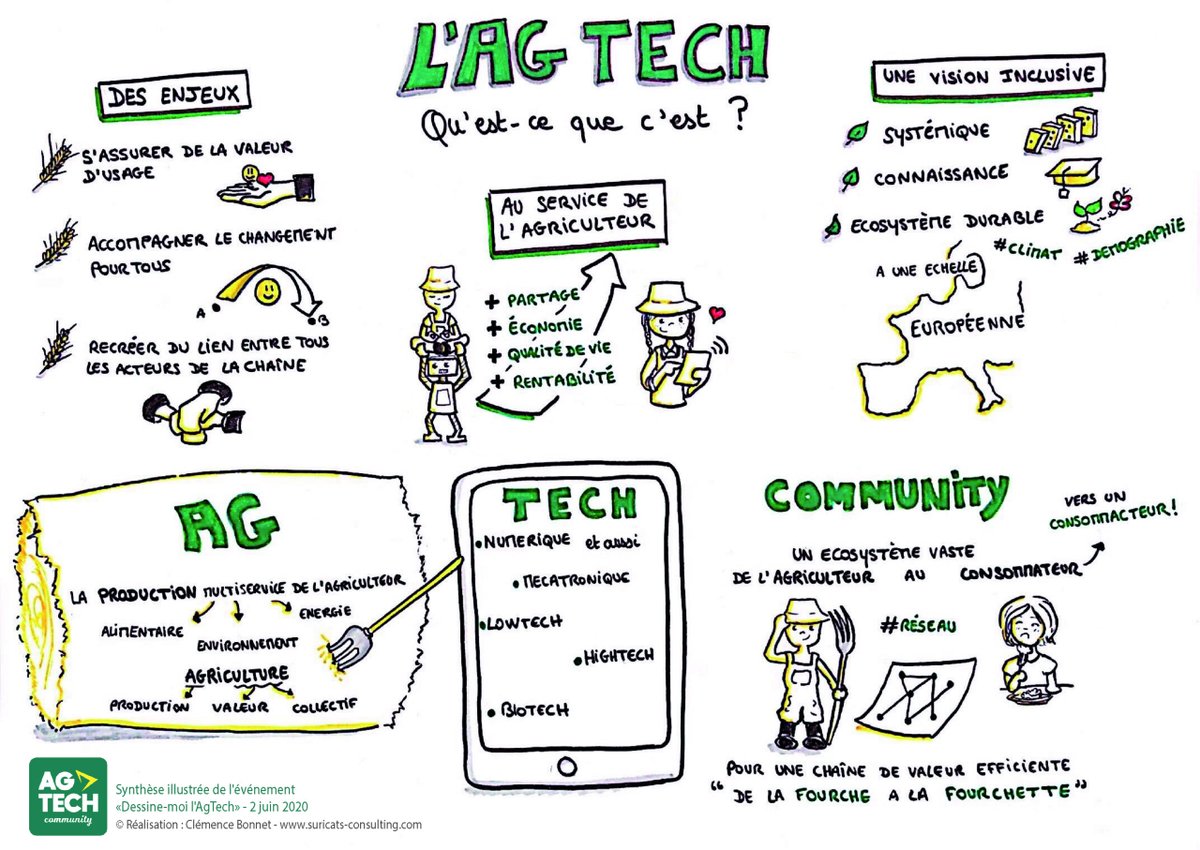 L'AG TECH
Qu'est-ce que c'est ?
DES ENJEUX
S'ASSURER DE LA VALEUR
D'USAGE
ACCOMPAGNER LE CHANGEMENT
POUR TOUS
A
B
RECRÉER DU LIEN ENTRE TOUS
LES ACTEURS DE LA CHAÎNE
AU SERVICE DE
L'AGRICULTEUR
+ PARTAGE
+ ÉCONOMIE
+ QUALITÉ DE VIE
+ RENTABILITÉ
UNE VISION INCLUSIVE
SYSTÉMIQUE
CONNAISSANCE
ECOSYSTÈME DURABLE
#CLIMAT #DEMOGRAPHIE
A UNE ECHELLE
EUROPÉENNE
AG
LA PRODUCTION MULTISERVICE DE L'AGRICULTEUR
ALIMENTAIRE
ENVIRONNEMENT
ENERGIE
AGRICULTURE
PRODUCTION VALEUR COLLECTIF
TECH
• NUMERIQUE et aussi
• MECATRONIQUE
• LOWTECH
• HIGHTECH
• BIOTECH
COMMUNITY
UN ECOSYSTÈME VASTE
DE L'AGRICULTEUR AU CONSOMMATEUR
VERS UN
CONSOMMACTEUR !
#RÉSEAU
POUR UNE CHAÎNE DE VALEUR EFFICIENTE
"DE LA FOURCHE A LA FOURCHETTE"
AG
TECH
community
Synthèse illustrée de l'événement
«Dessine-moi l'AgTech» - 2 juin 2020
© Réalisation : Clémence Bonnet - www.suricats-consulting.com